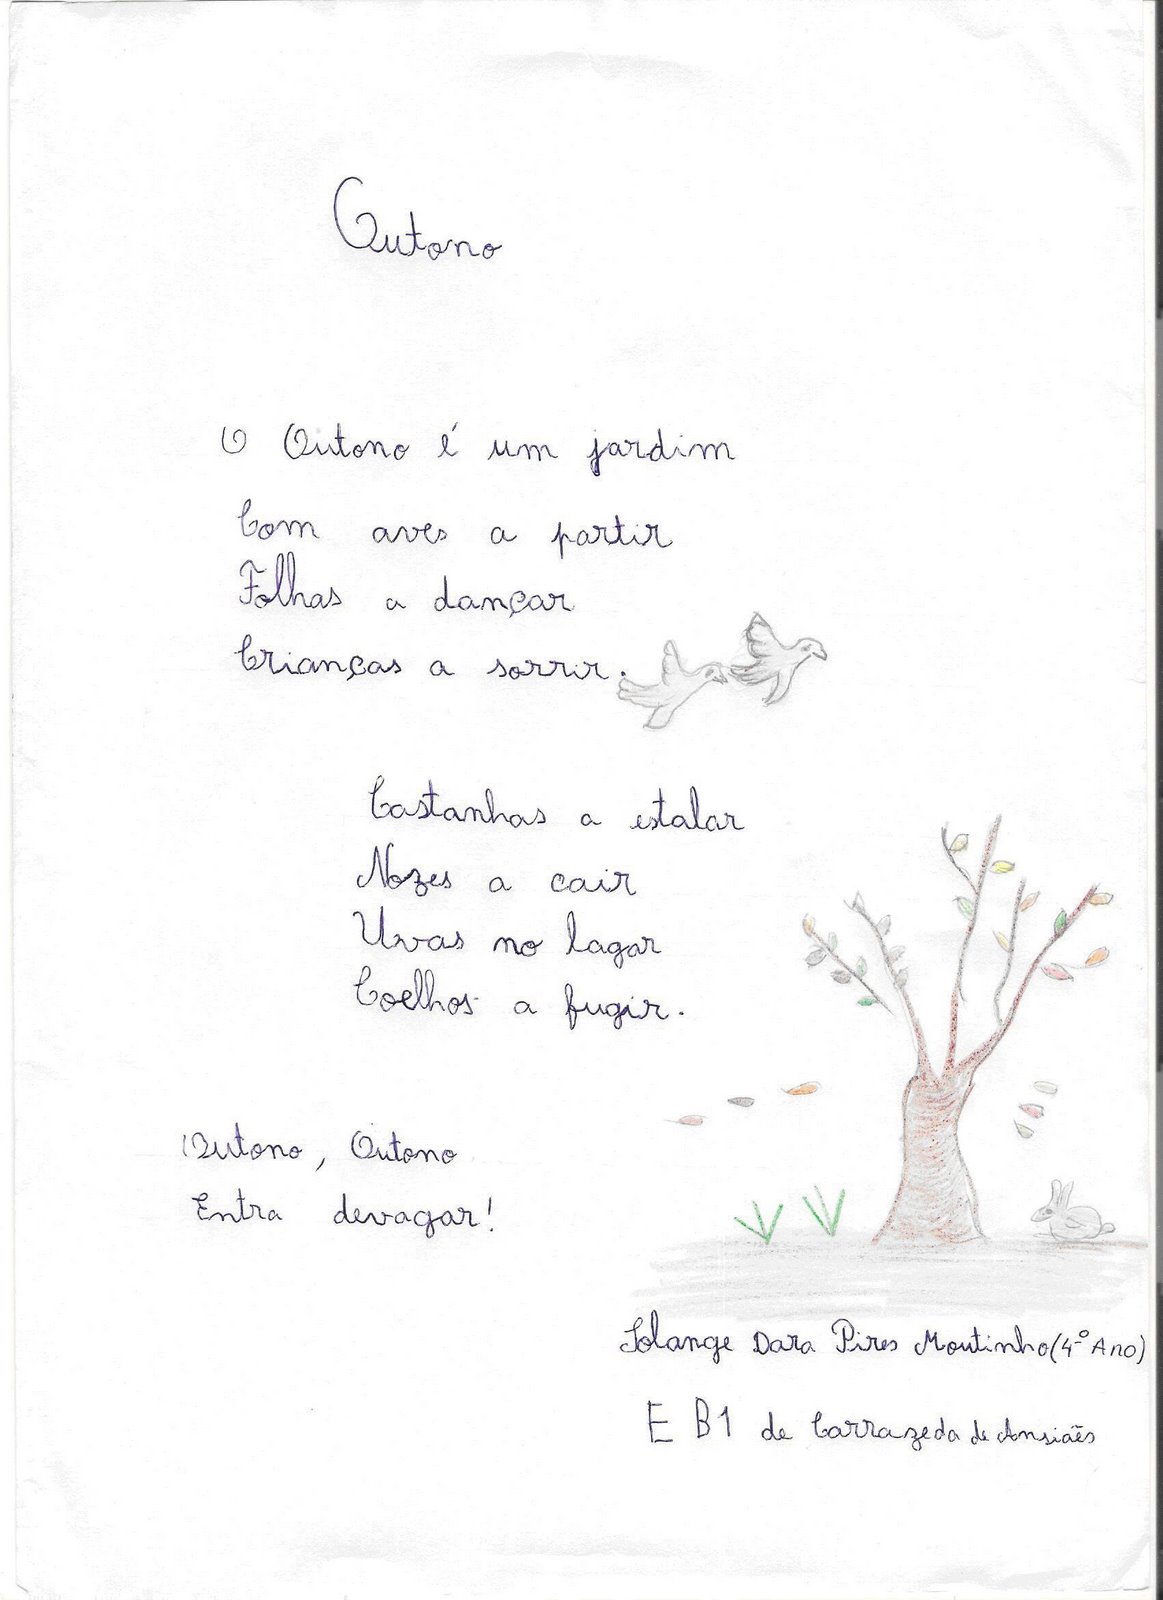 Outono
O Outono é um jardim
Com aves a partir
Folhas a dançar
Crianças a sorrir.
Castanhas a estalar
Nozes a cair
Uvas no lagar
Coelhos a fugir.
Outono, Outono
Entra devagar!
Solange Dara Pires Moutinho (4º Ano)
E B1 de Carrazeda de Ansiães